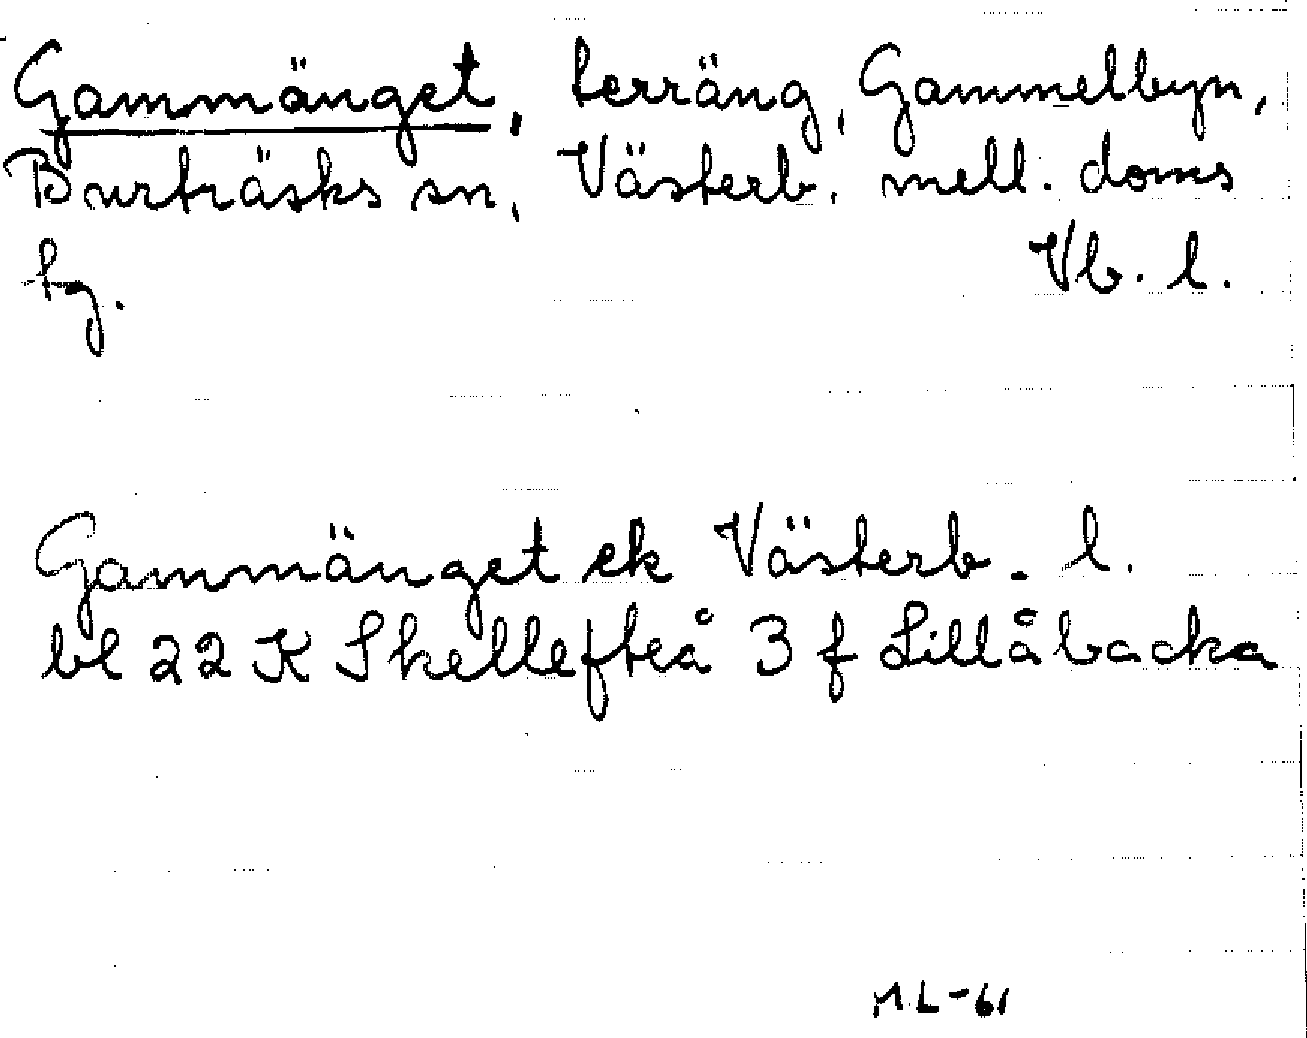 Gammänget, terräng, Gammelbyn,
Burträsks sn, Västerb. mell. doms
tg. Vb. l.
Gammänget ek Västerb. l.
bl 22 K Skellefteå 3 f Lillåbacka
ML-61